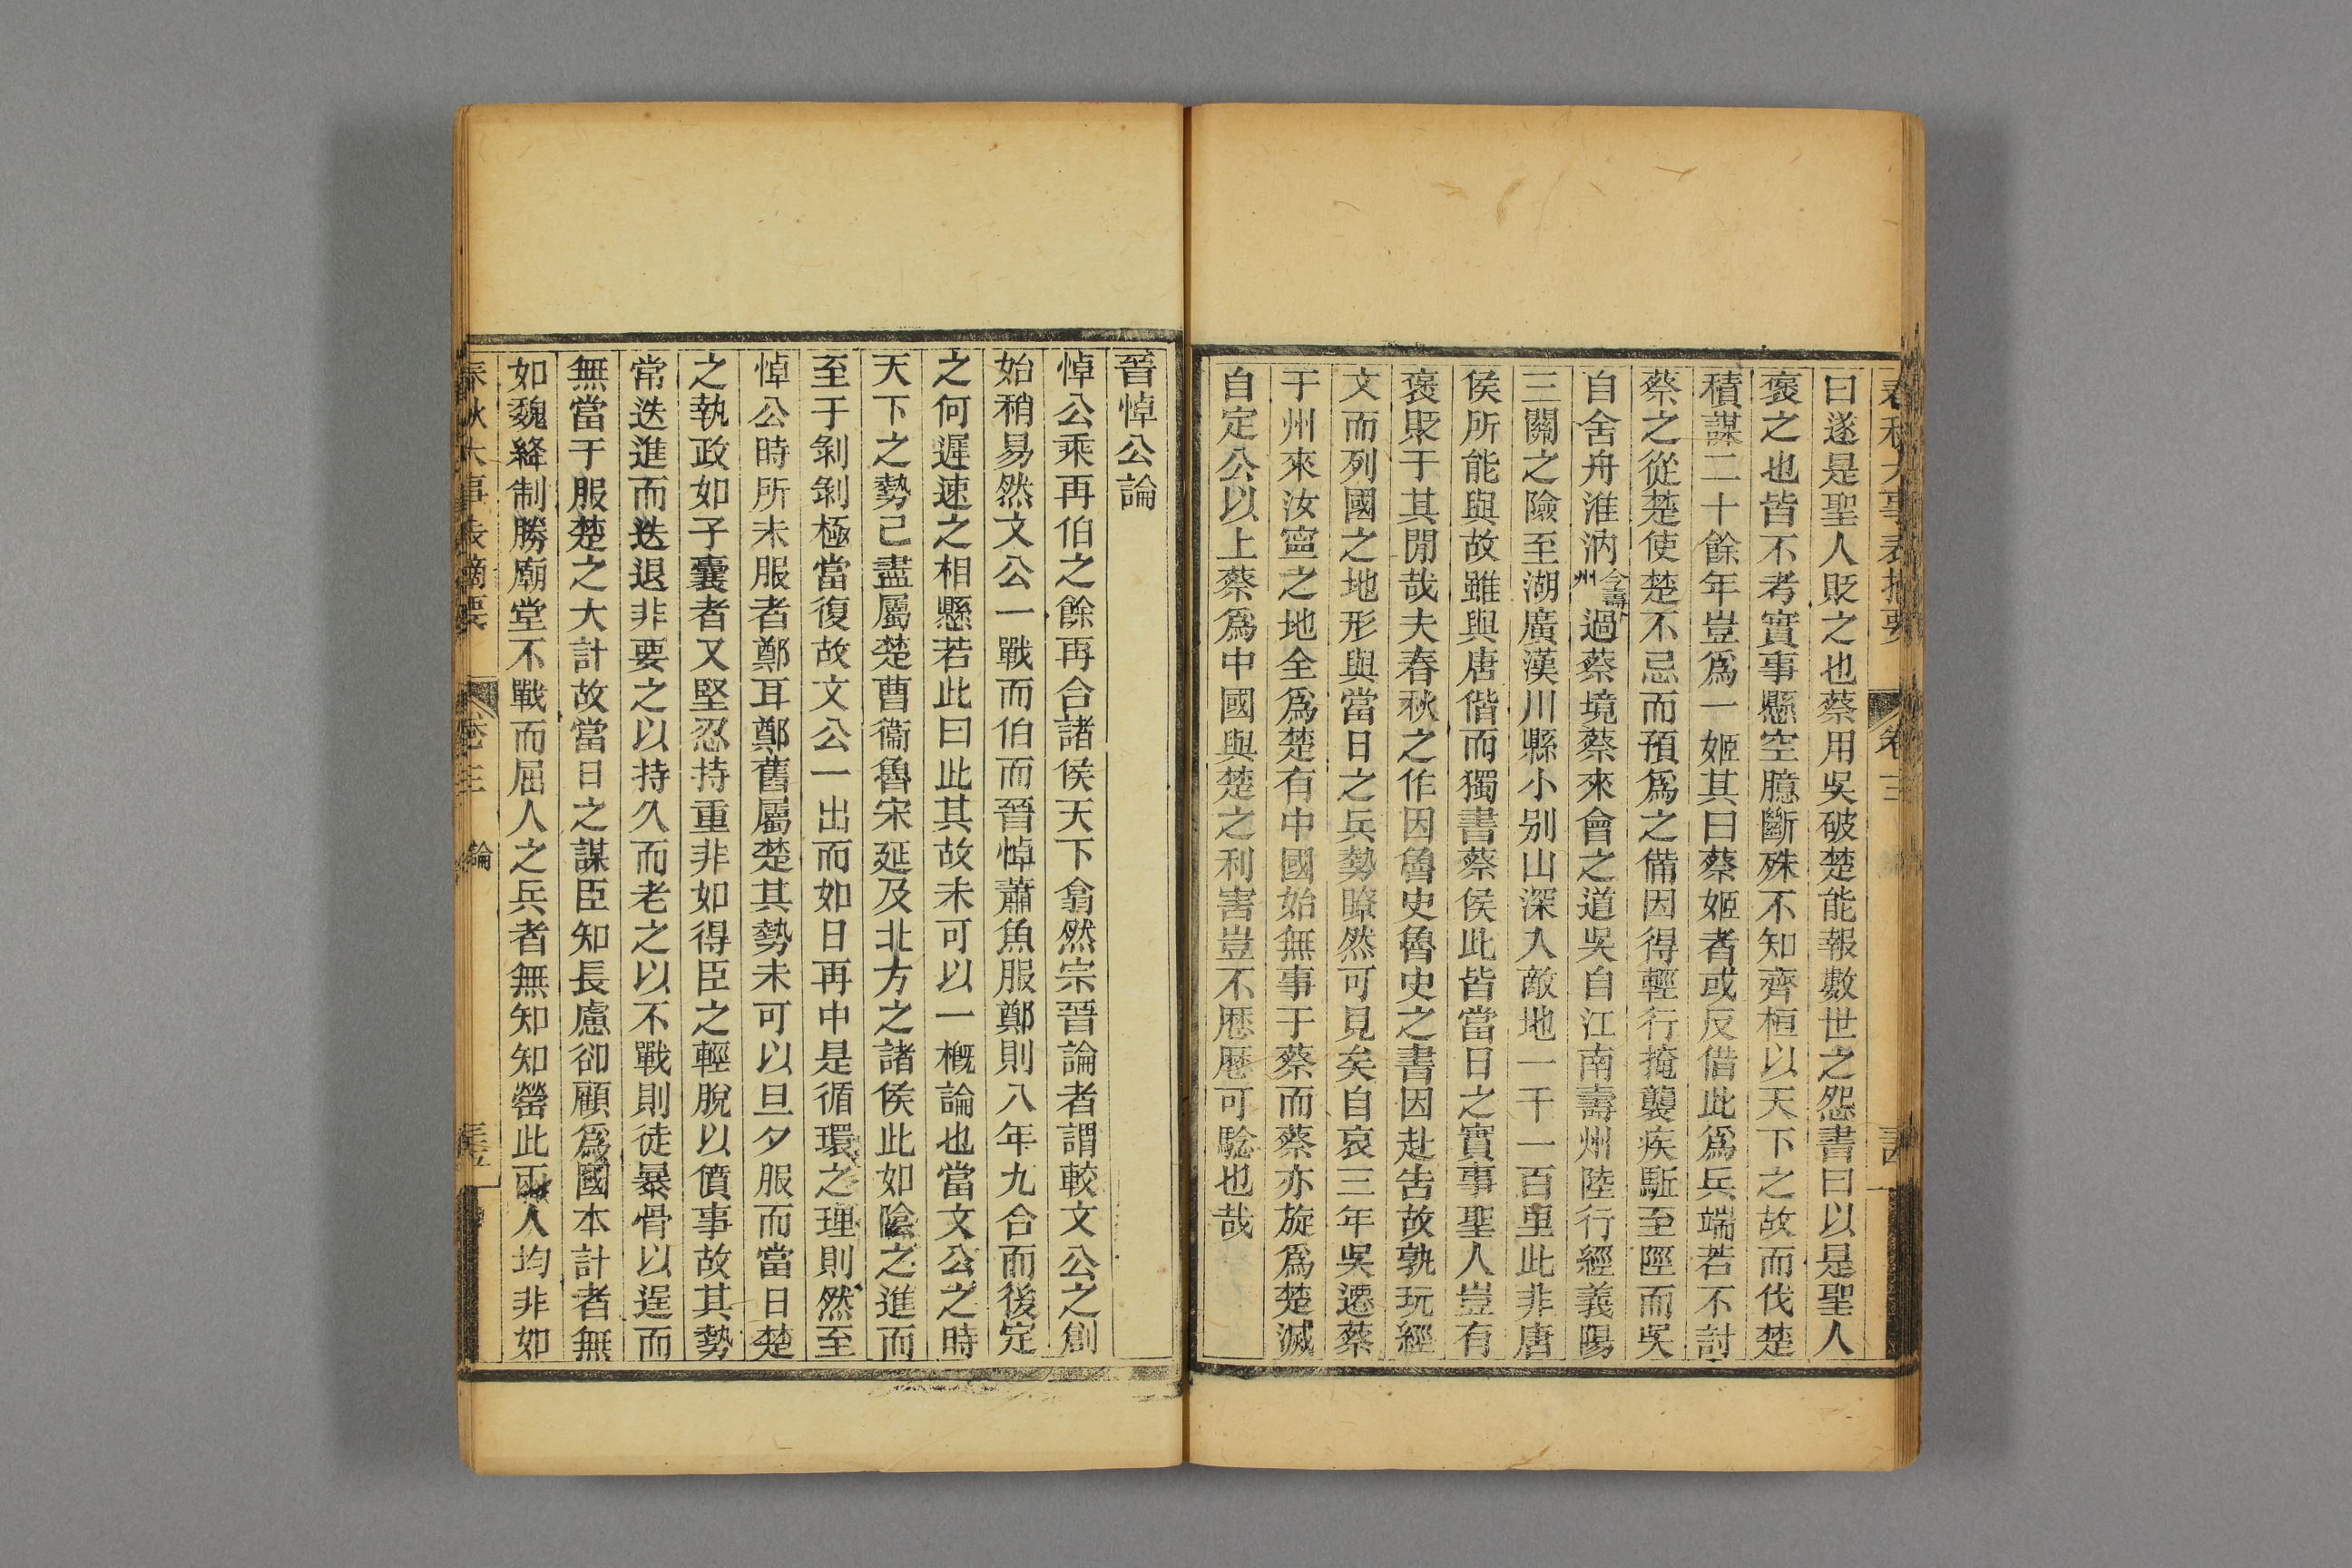 春秋大事表摘要 卷三
曰遂是聖人貶之也蔡用吳破楚能報數世之怨書曰以是聖人
褒之也皆不考實事懸空臆斷殊不知齊桓以天下之故而伐楚
積謀二十餘年豈爲一姬其曰蔡姬者或反借此爲兵端若不討
蔡之從楚使楚不忌而預爲之備因得輕行掩襲疾駈至陘而吳
自舍舟淮汭今壽州過蔡境蔡來會之道吳自江南壽州陸行經義陽
三關之險至湖廣漢川縣小别山深入敵地一千一百里此非唐
侯所能與故雖與唐偕而獨書蔡侯此皆當日之實事聖人豈有
褒貶于其閒哉夫春秋之作因魯史魯史之書因赴告故孰玩經
文而列國之地形與當日之兵勢瞭然可見矣自哀三年吳遷蔡
于州來汝寧之地全爲楚有中國始無事于蔡而蔡亦旋爲楚滅
自定公以上蔡爲中國與楚之利害豈不歷歷可騐也哉
晉悼公論
悼公乘再伯之餘再合諸侯天下翕然宗晉論者謂較文公之創
始稍易然文公一戰而伯而晉悼蕭魚服鄭則八年九合而後定
之何遲速之相懸若此曰此其故未可以一槪論也當文公之時
天下之勢已盡屬楚曹衞魯宋延及北方之諸侯此如陰之進而
至于剝剝極當復故文公一出而如日再中是循環之理則然至
悼公時所未服者鄭耳鄭舊屬楚其勢未可以旦夕服而當日楚
之執政如子囊者又堅忍持重非如得臣之輕脫以僨事故其勢
常迭進而迭退非要之以持久而老之以不戰則徒暴骨以逞而
無當于服楚之大計故當日之謀臣知長慮卻顧爲國本計者無
如魏絳制勝廟堂不戰而屈人之兵者無知知罃此兩人均非如
春秋大事表摘要 卷三 論